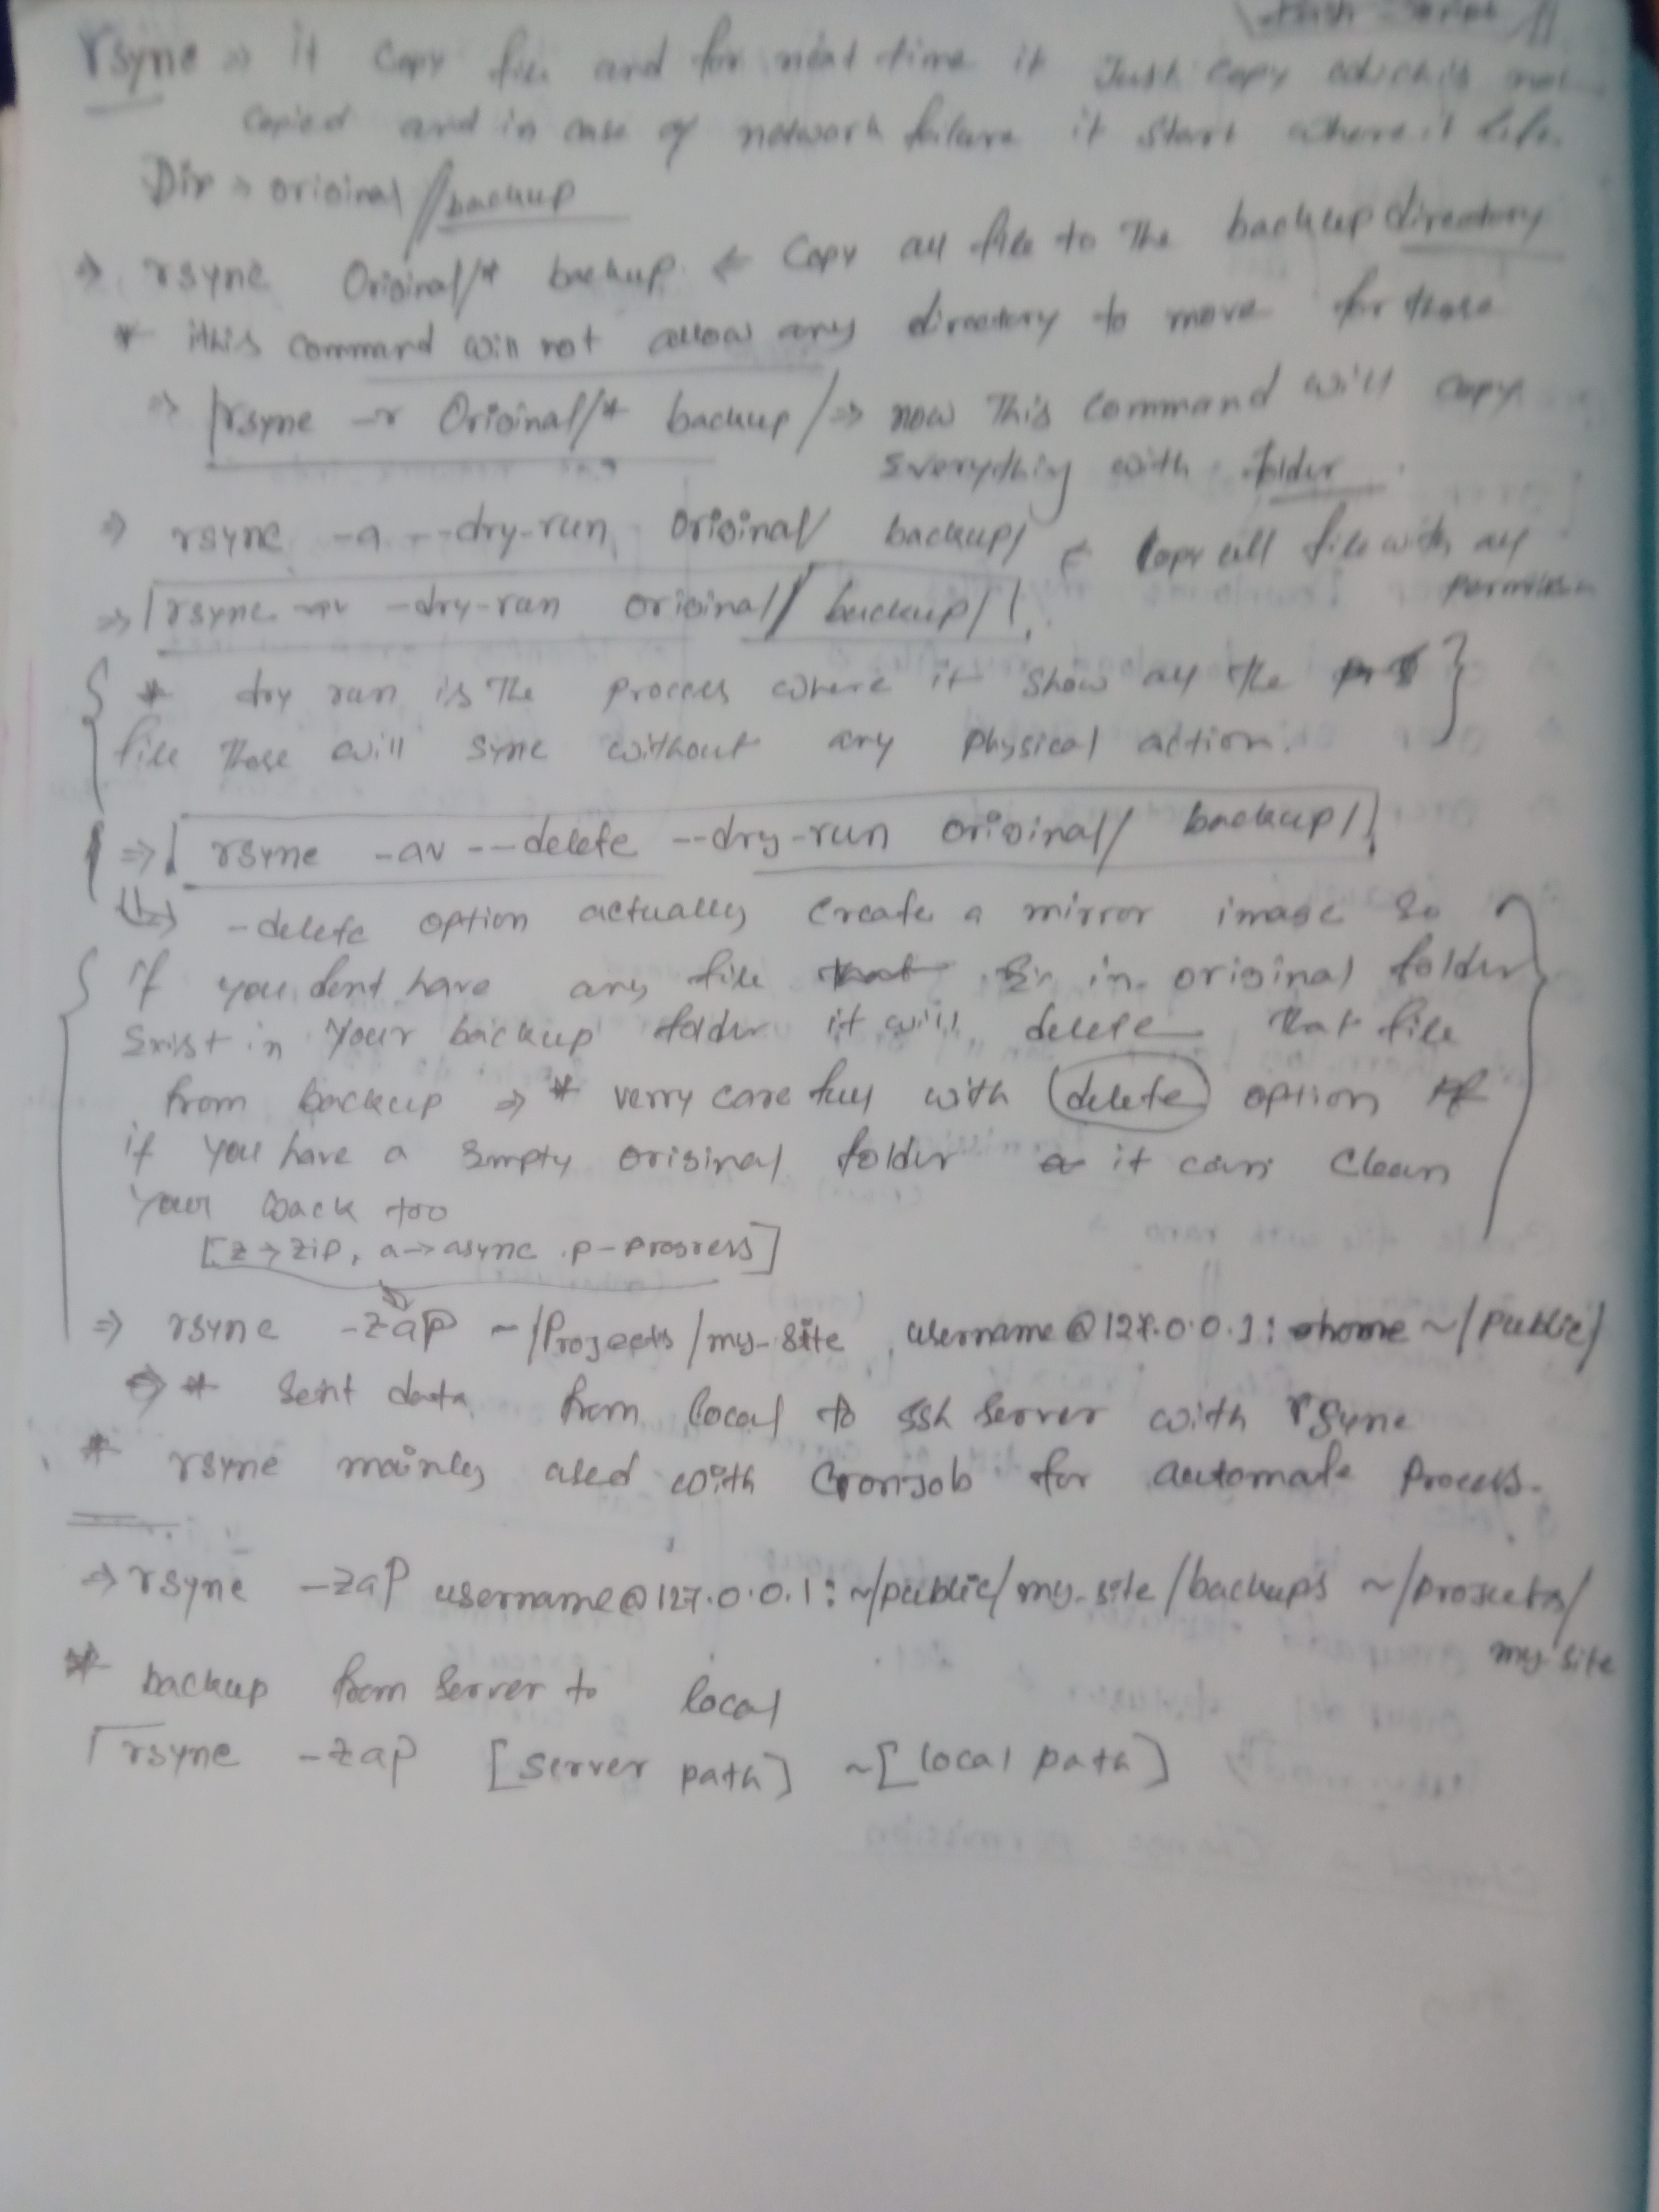 Bash Script
rsync ⇒ it copy file and for next time it Just copy which is not
copied and in case of network failure it start where it left.
Dir ⇒ original // backup
⇒ rsync Original/* backup ← Copy all file to the backup directory
* this command will not allow any directory to move for those
⇒ rsync -r Original/* backup / ⇒ now This command will copy
Everything with folder
⇒ rsync -a --dry-run original/ backup/ ← Copy all file with all
permission
⇒ rsync -av -dry-run original/ backup/
* dry run is The process where it show all the
file those will sync without any physical action.
⇒ rsync -av --delete --dry-run original/ backup/
-delete option actually create a mirror image so
if you dont have any file in original folder
Exist in your backup folder it will delete that file
from backup ⇒ * verry care full with delete option
if you have a Empty original folder it can clean
your back too
[z → zip, a → async p - progress]
⇒ rsync -zap ~/Projects/my-site username@127.0.0.1: ~/public/
⇒ * Sent data from local to ssh server with rsync
* rsync mainly used with Cronjob for automate process.
⇒ rsync -zap username@127.0.0.1: ~/public/my-site/backups ~/projects/
my site
* backup from server to local
rsync -zap [server path] ~[local path]